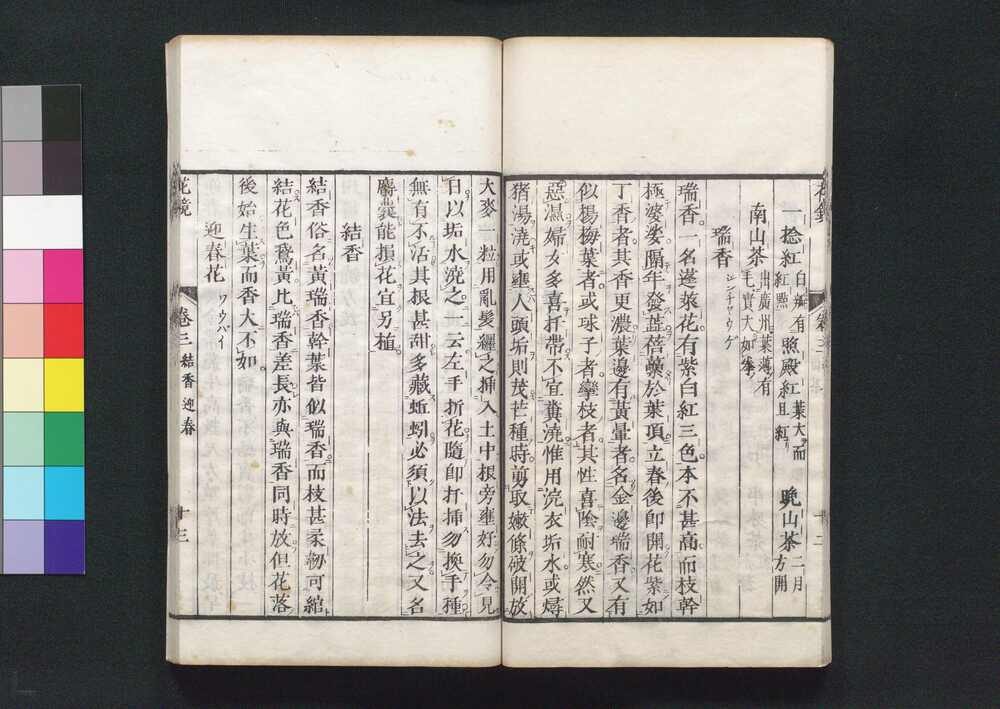 一捻紅 白瓣有紅點 照殿紅 葉大而且紅 晩山茶 二月方開
南山茶 出廣州葉薄有毛實大如拳
瑞香 ジンチャウゲ
瑞香一名蓬萊花有紫白紅三色本不甚高而枝幹
極婆娑隔年發蓓蕾於葉頂立春後卽開花紫如
丁香者其香更濃葉邊有黃暈者名金邊瑞香又有
似楊梅葉者或毬子者攣枝者其性喜陰耐寒然又
惡濕婦女多喜扦帶不宜糞澆惟用浣衣垢水或燖
猪湯澆或壅人頭垢則茂芒種時剪取嫩條破開放
大麥一粒用亂髮纏之揷入土中根旁壅好勿令見
日以垢水澆之一云左手折花隨卽扦揷勿換手種
無有不活其根甚甜多藏蚯蚓必須以法去之又名
麝囊能損花宜另植
結香
結香俗名黃瑞香幹葉皆似瑞香而枝甚柔韌可綰
結花色鵞黃比瑞香差長亦與瑞香同時放但花落
後始生葉而香大不如
迎春花 ワウバイ
花鏡 卷三 結香 迎春 十三